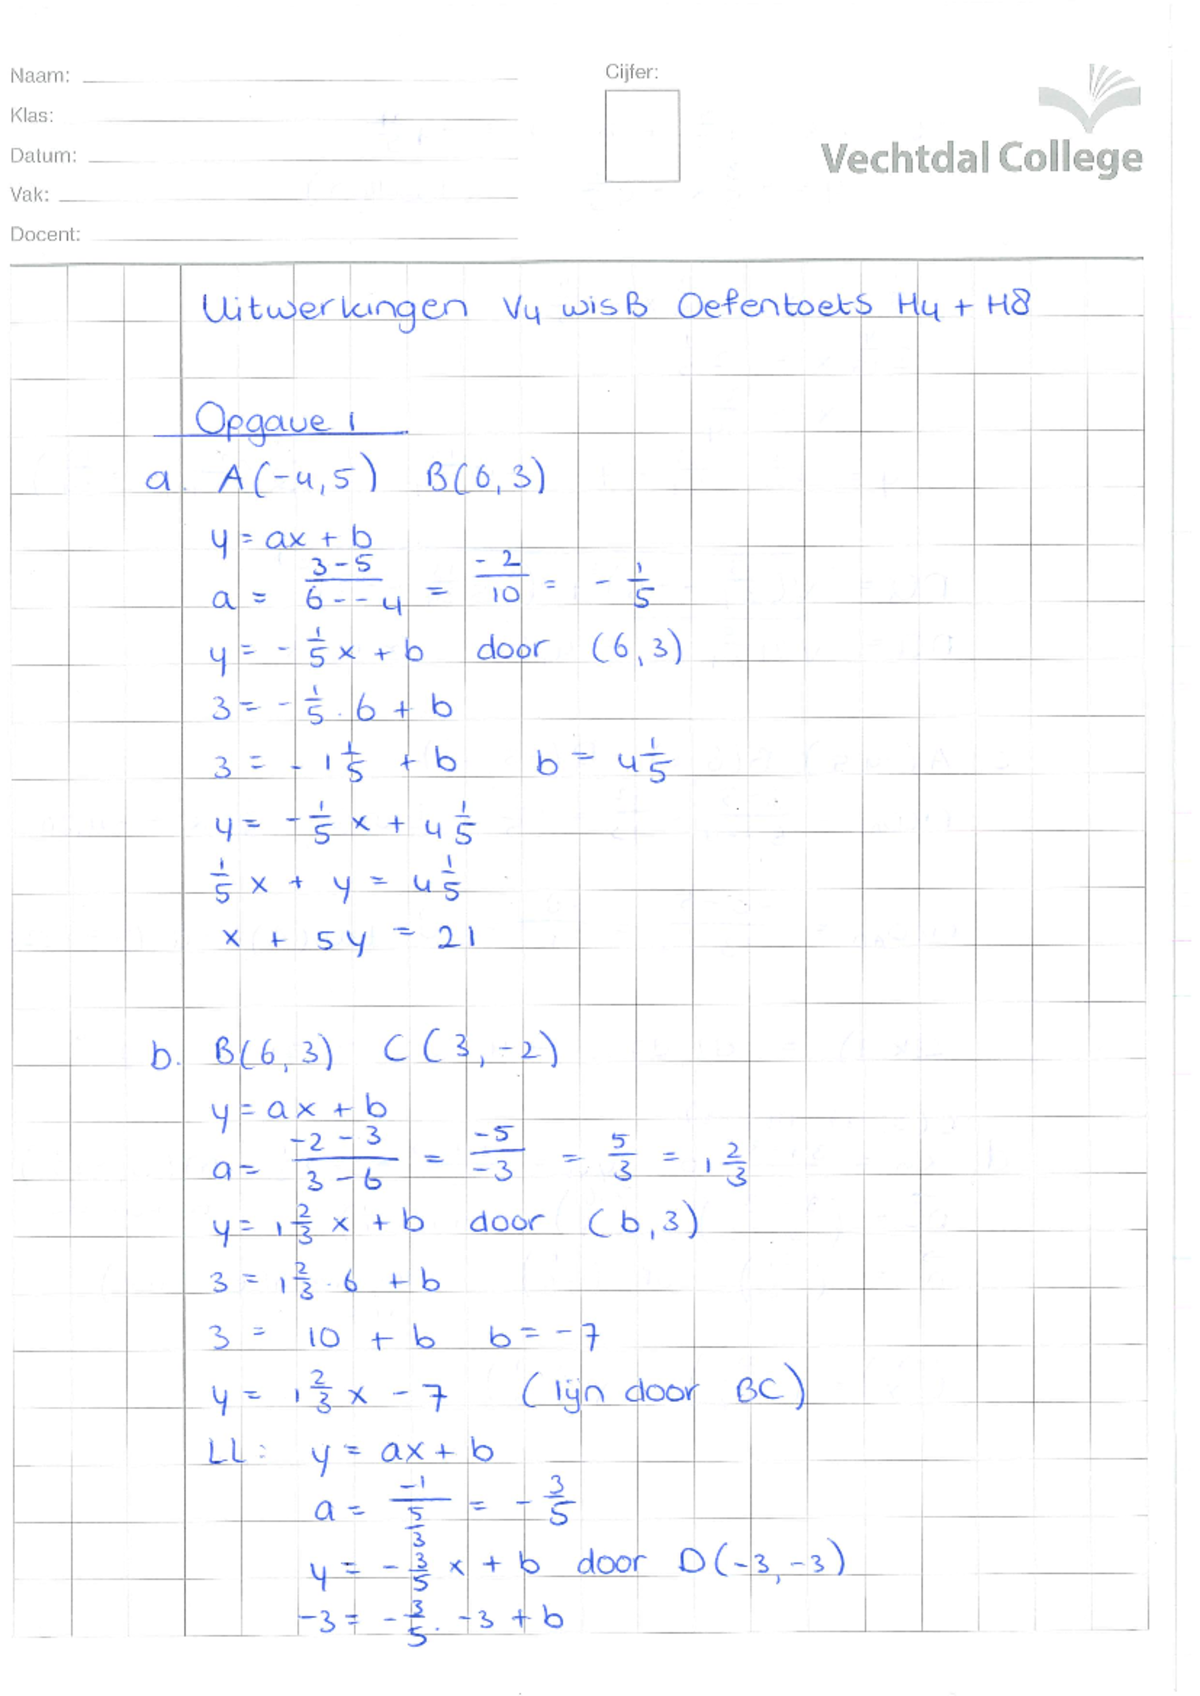 Naam:
Klas:
Datum:
Vak:
Docent:
Cijfer:
Vechtdal College
Uitwerkingen V4 wisB Oefentoets H4 + H8
Opgave 1
a. A(-4,5) B(6,3)
y = ax + b
a = (3-5)/(6--4) = -2/10 = -1/5
y = -1/5 x + b door (6,3)
3 = -1/5 · 6 + b
3 = -1 1/5 + b b = 4 1/5
y = -1/5 x + 4 1/5
1/5 x + y = 4 1/5
x + 5y = 21
b. B(6,3) C(3,-2)
y = ax + b
a = (-2-3)/(3-6) = -5/-3 = 5/3 = 1 2/3
y = 1 2/3 x + b door (6,3)
3 = 1 2/3 · 6 + b
3 = 10 + b b = -7
y = 1 2/3 x - 7 (lijn door BC)
LL: y = ax + b
a = -1/(5/3) = -3/5
y = -3/5 x + b door D(-3,-3)
-3 = -3/5 · -3 + b